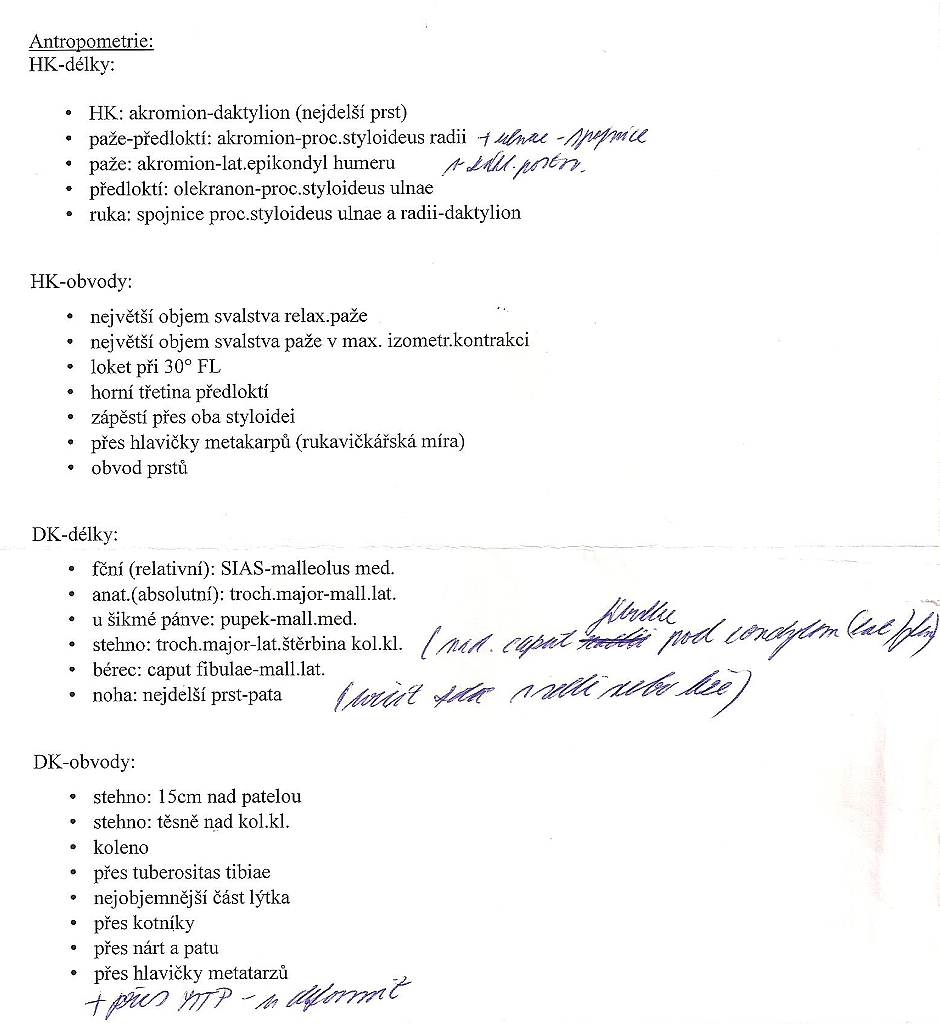 Antropometrie:
HK-délky:
• HK: akromion-daktylion (nejdelší prst)
• paže-předloktí: akromion-proc.styloideus radii + ulnae - spojnice
• paže: akromion-lat.epikondyl humeru
• předloktí: olekranon-proc.styloideus ulnae
• ruka: spojnice proc.styloideus ulnae a radii-daktylion
HK-obvody:
• největší objem svalstva relax.paže
• největší objem svalstva paže v max. izometr.kontrakci
• loket při 30° FL
• horní třetina předloktí
• zápěstí přes oba styloidei
• přes hlavičky metakarpů (rukavičkářská míra)
• obvod prstů
DK-délky:
• fční (relativní): SIAS-malleolus med.
• anat.(absolutní): troch.major-mall.lat.
• u šikmé pánve: pupek-mall.med.
• stehno: troch.major-lat.štěrbina kol.kl. (nad. caput pod condylom (lat
• bérec: caput fibulae-mall.lat.
• noha: nejdelší prst-pata (určit zda v sedě nebo leže)
DK-obvody:
• stehno: 15cm nad patelou
• stehno: těsně nad kol.kl.
• koleno
• přes tuberositas tibiae
• nejobjemnější část lýtka
• přes kotníky
• přes nárt a patu
• přes hlavičky metatarzů
+ přes MTP - u deformit